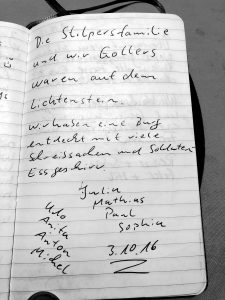 Die Stilpersfamilie
und wir Gollers
waren auf dem
Lichtenstein.
wir haben eine Burg
entdeckt mit viele
und Soldaten
Essgeschirr.
Julia
Udo Mathias
Anita Paul
Anton Sophia
Michel
3.10.16